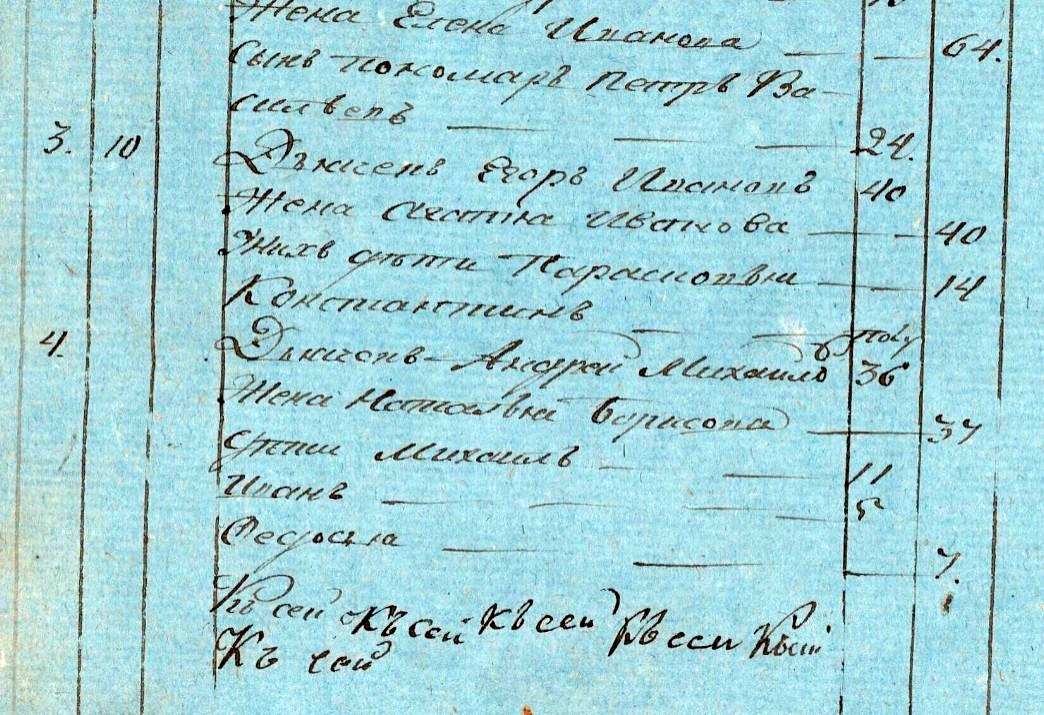 Жена Елена Иванова — — 64.
Сынъ пономарь Петръ Ва-
сильевъ — — — 24.
3. 10 Дьячекъ Егоръ Ивановъ 40
Жена Агафія Иванова — — 40
У нихъ дѣти Парасковья — — 14
Константинъ — —
4. Дьячекъ Андрей Михайло 36
Жена Наталья Борисова — 37
дѣти Михаилъ — — 11
Иванъ — — — — 5
Федосья — — 7.
Къ сей Къ сей Къ сей Къ сей Къ сей
Къ сей